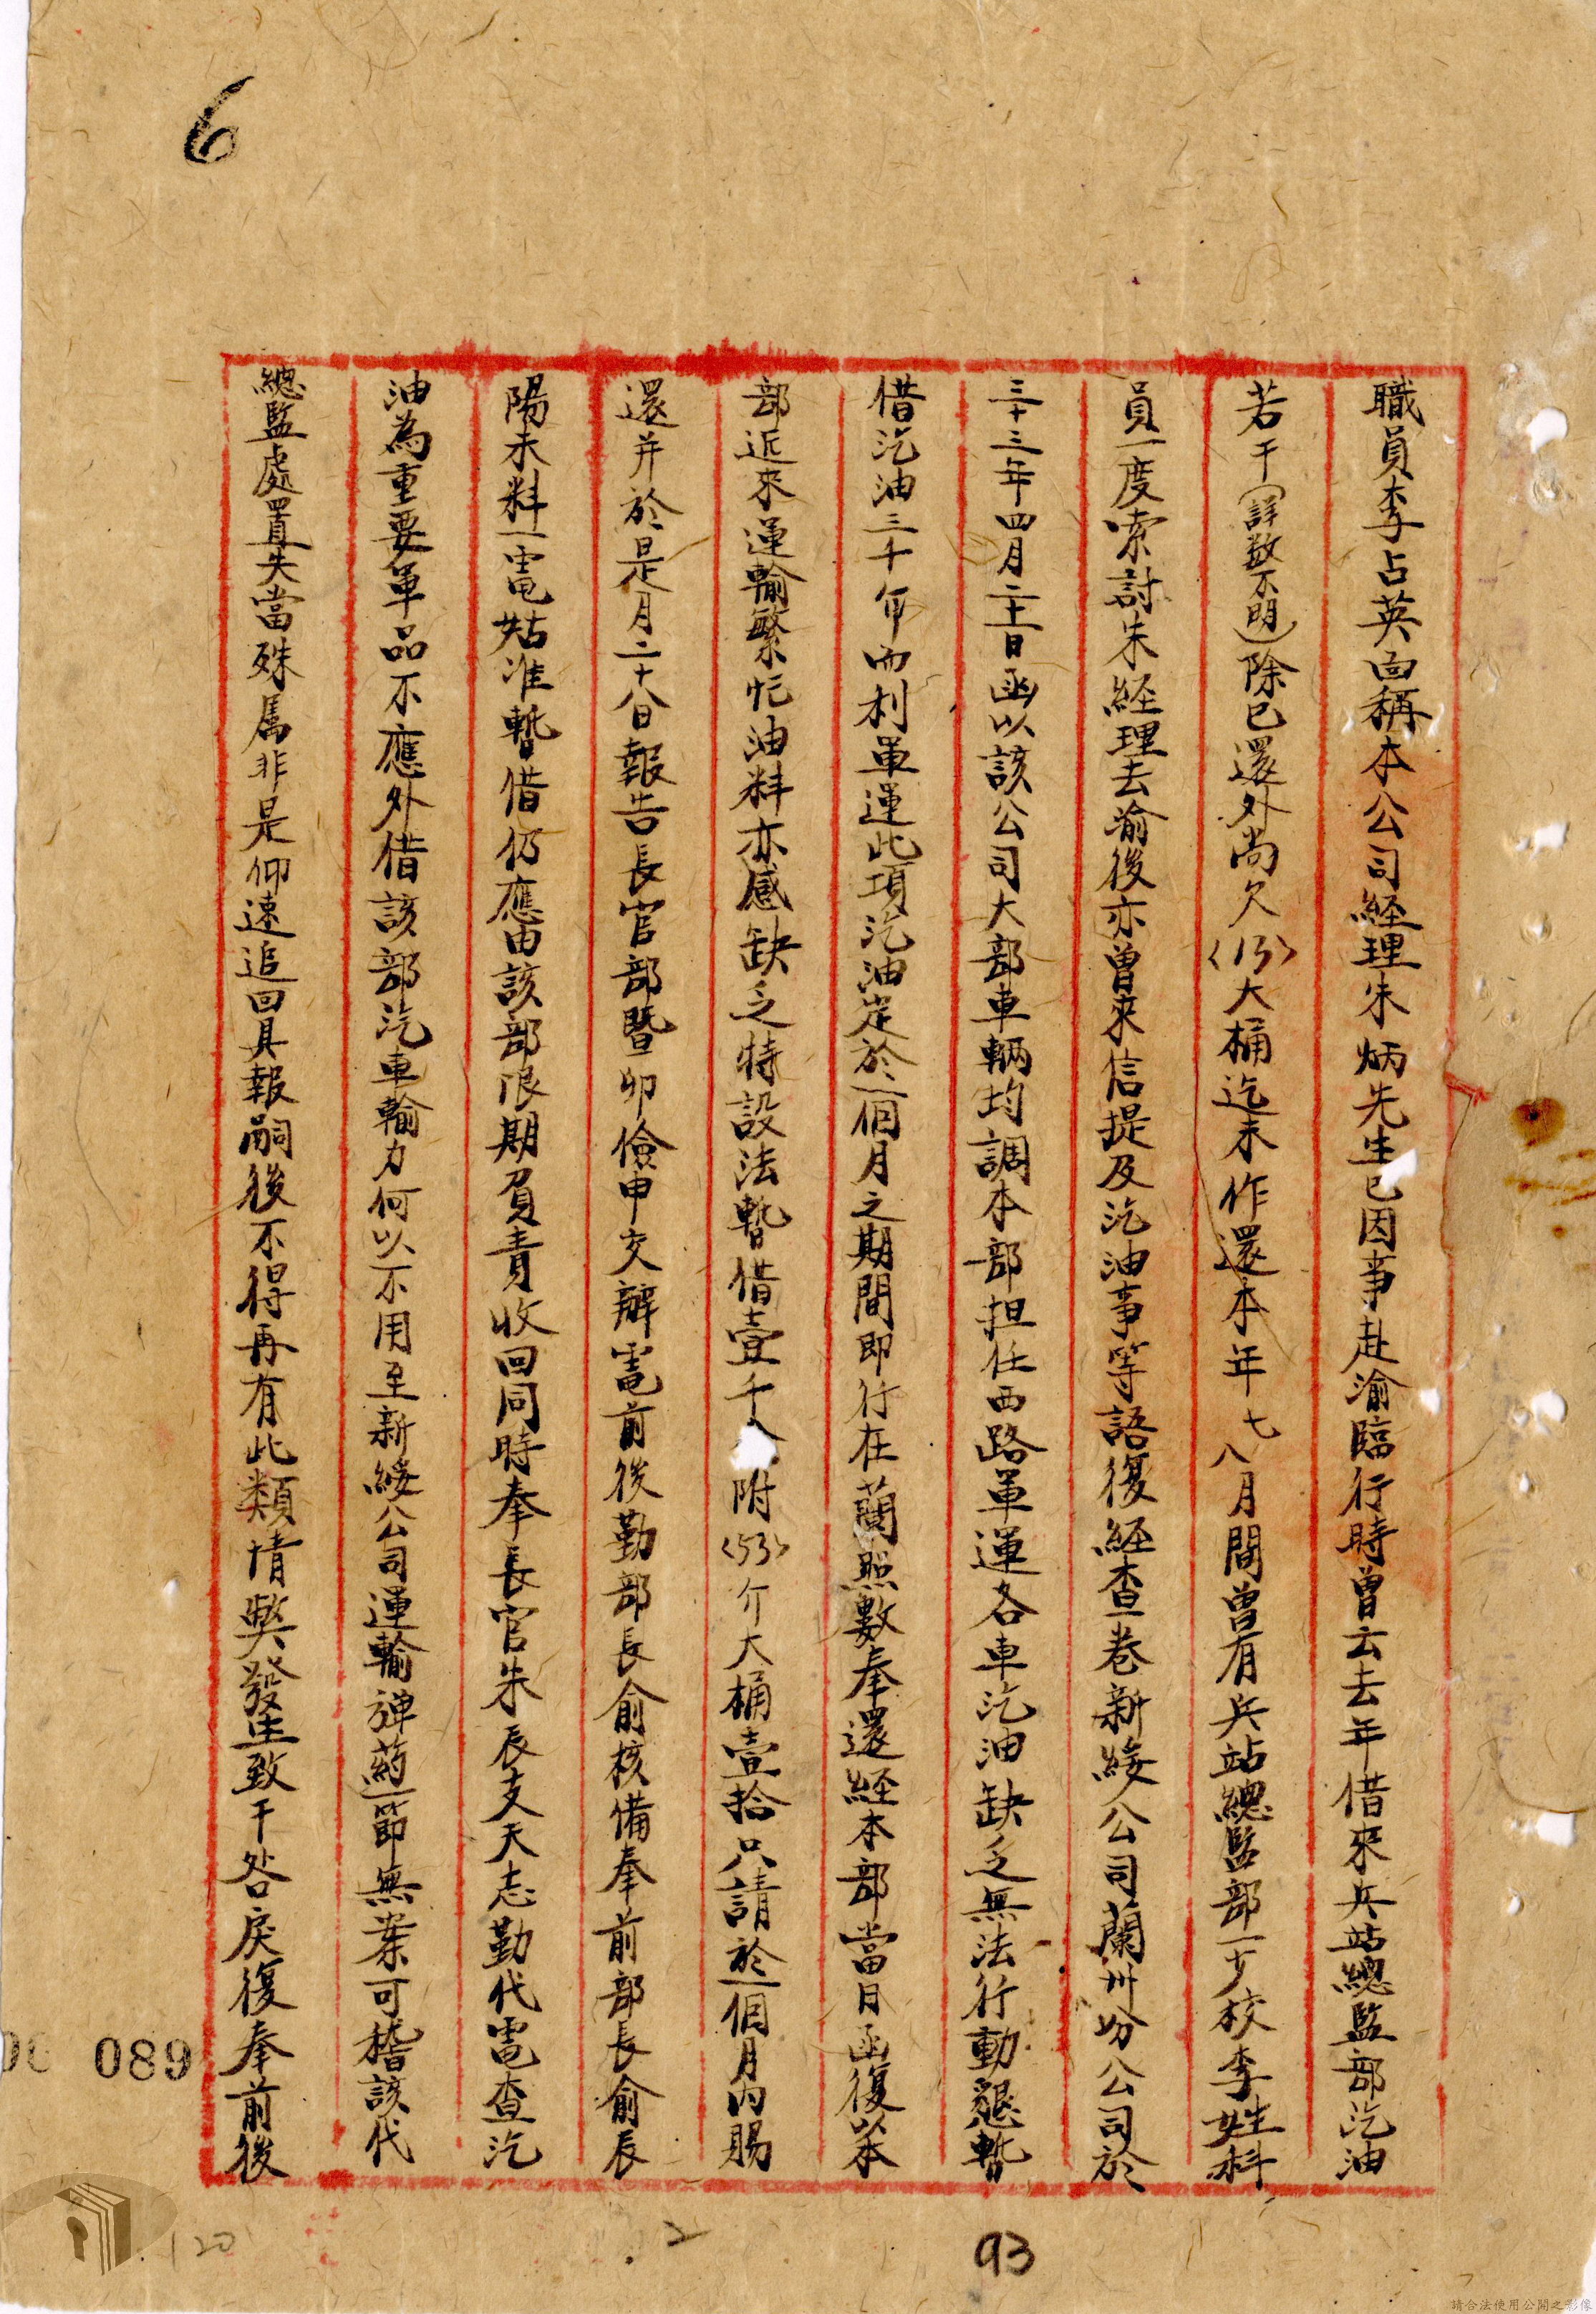 6
職員李占英面稱本公司経理朱炳先生已因事赴渝臨行時曾云去年借來兵站總監部汽油
若干(詳数不明)除已還外尚欠〈13〉大桶迄未作還本年七八月間曾有兵站總監部一少校李姓科
員一度索討朱経理去渝後亦曾來信提及汽油事等語復経查卷新綏公司蘭州分公司於
三十三年四月二十一日函以該公司大部車輛均調本部担任西路軍運各車汽油缺乏無法行動懇暫
借汽油三千介而利軍運此項汽油定於一個月之期間即行在蘭照數奉還経本部當日函復以本
部近來運輸繁忙油料亦感缺乏特設法暫借壹千 附〈53〉介大桶壹拾只請於一個月內賜
還并於是月二十八日報告長官部暨卯儉申交辦電前後勤部長俞核備奉前部長俞辰
陽未料一電姑准暫借仍應由該部限期負責收回同時奉長官朱辰支天志勤代電查汽
油為重要軍品不應外借該部汽車輸力何以不用至新綏公司運輸弹葯一節無案可稽該代
總監處置失當殊属非是仰速追回具報嗣後不得再有此類情弊發生致干咎戾復奉前後
089
120
2
93
請合法使用公開之影像